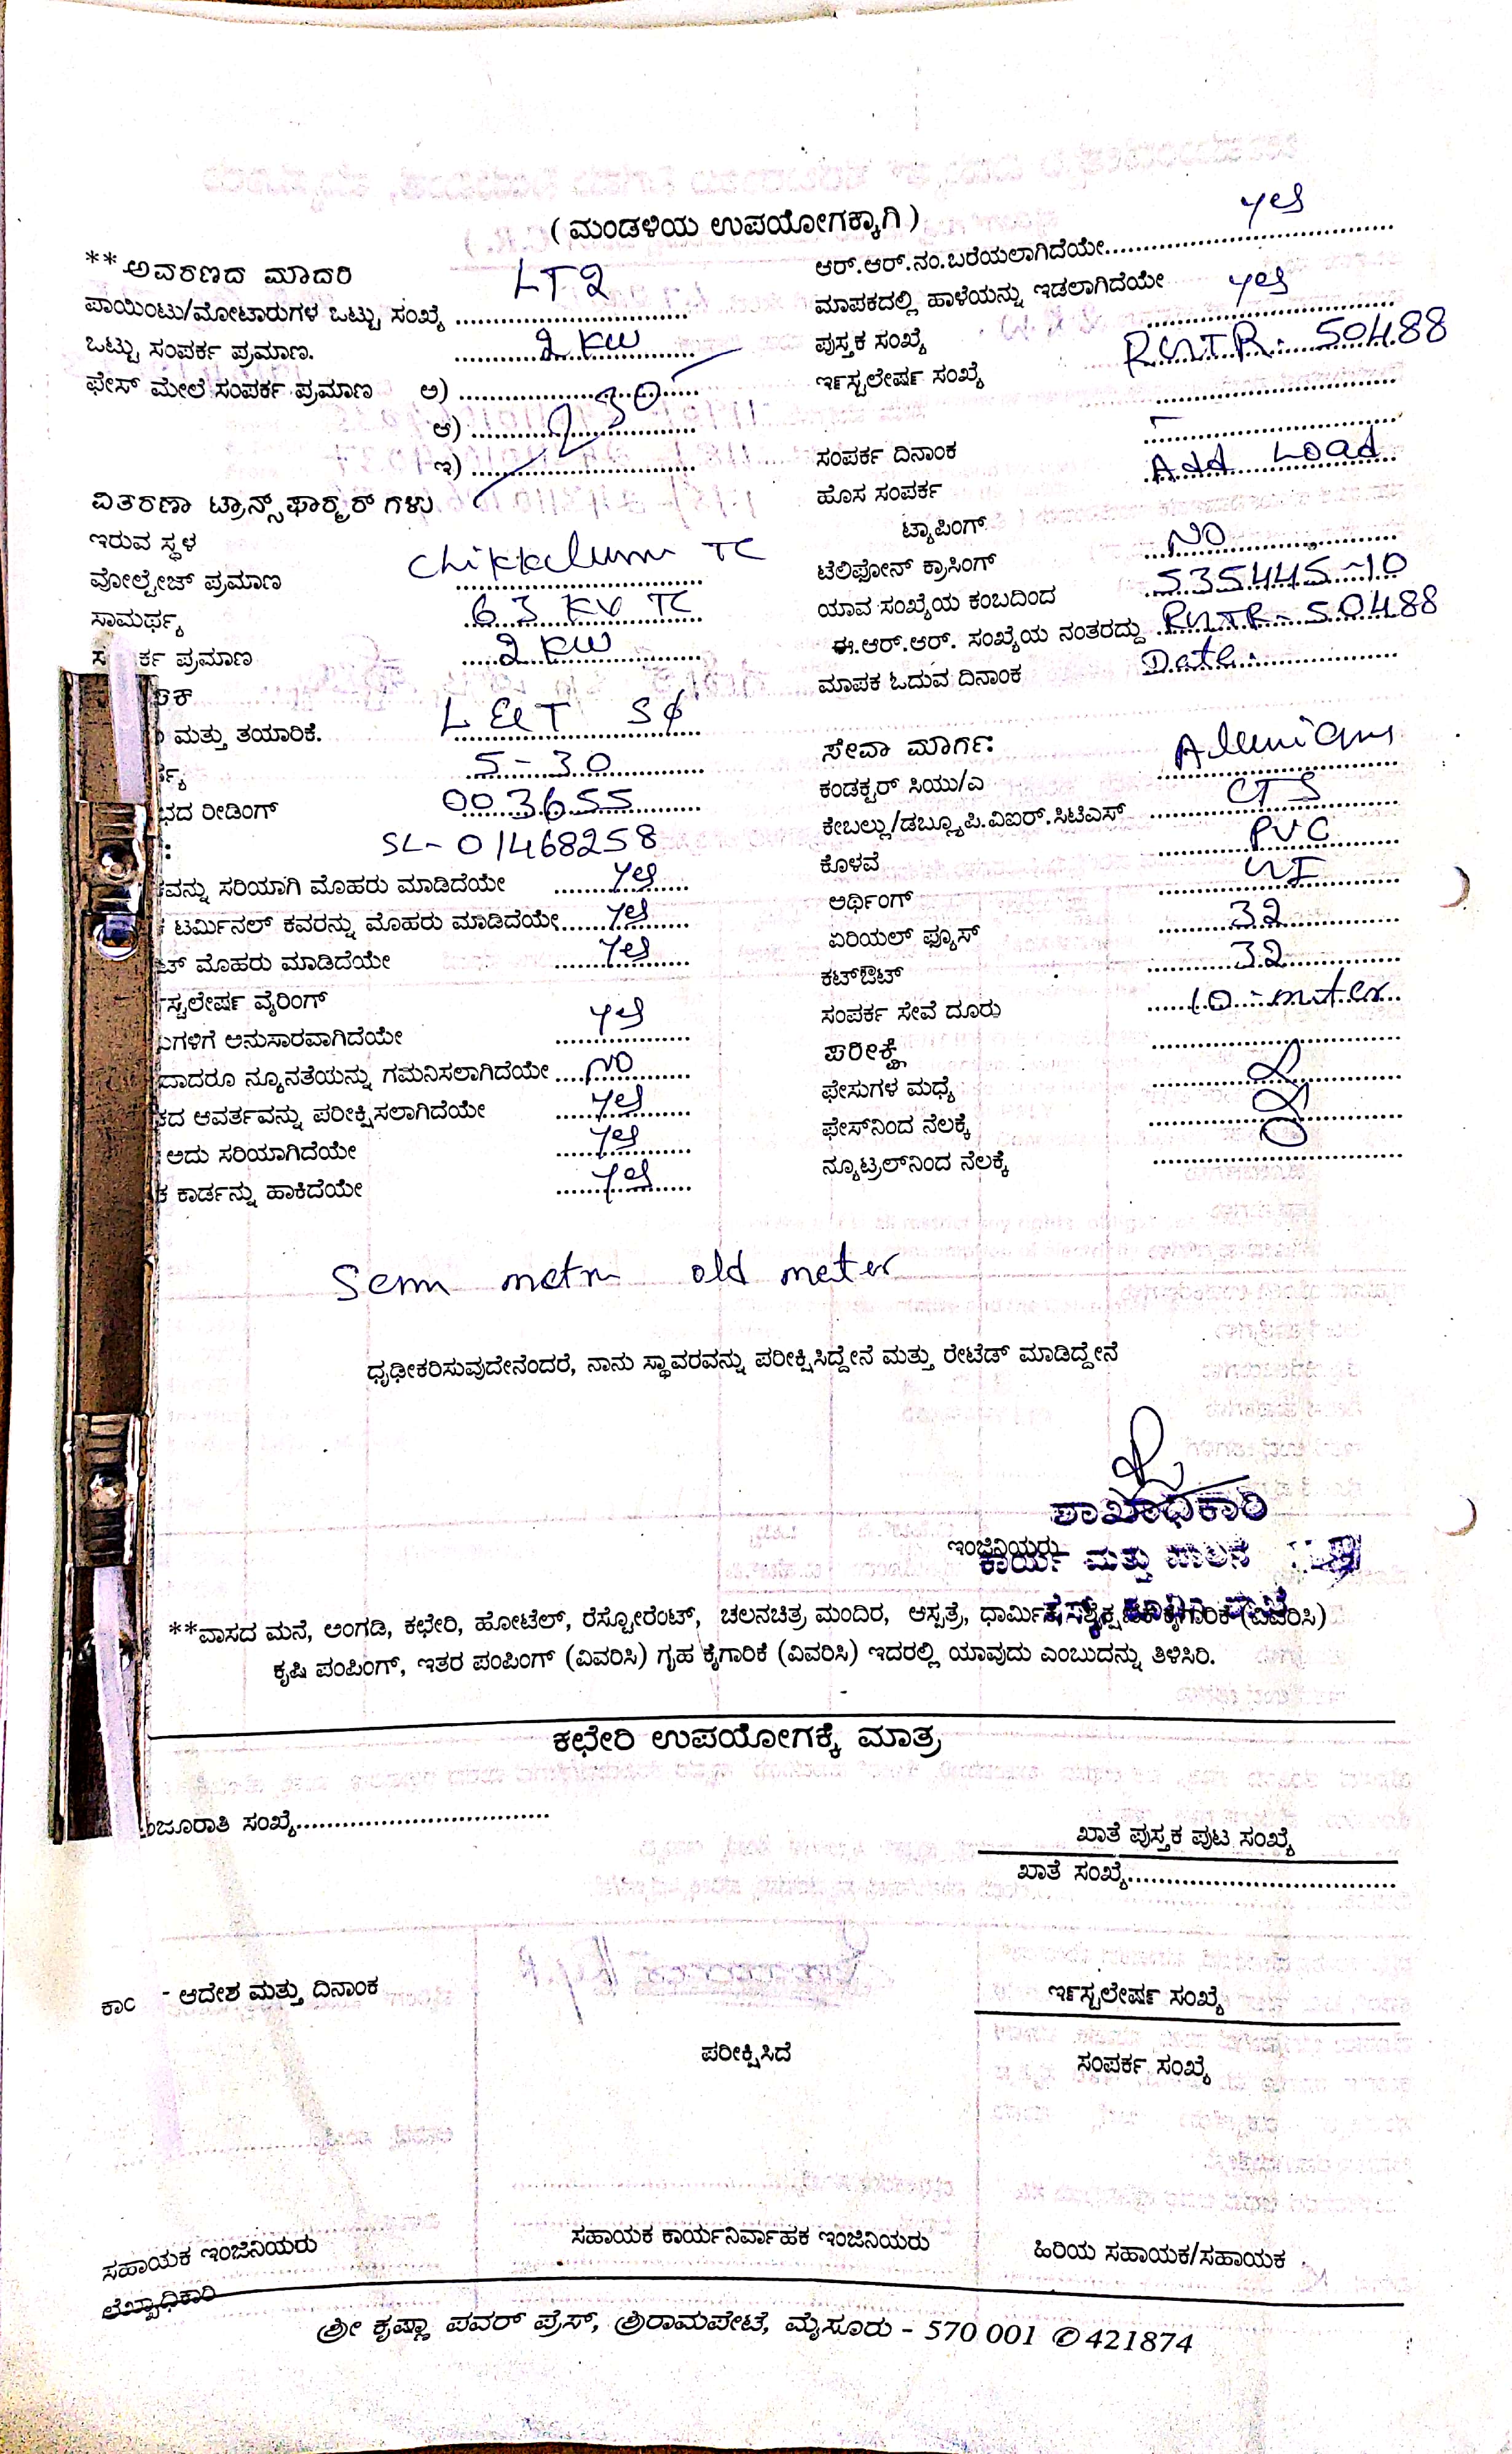 ( ಮಂಡಳಿಯ ಉಪಯೋಗಕ್ಕಾಗಿ )
**ಅವರಣದ ಮಾದರಿ LT2
ಪಾಯಿಂಟು/ಮೋಟಾರುಗಳ ಒಟ್ಟು ಸಂಖ್ಯೆ ..............................
ಒಟ್ಟು ಸಂಪರ್ಕ ಪ್ರಮಾಣ. 2 KW
ಫೇಸ್ ಮೇಲೆ ಸಂಪರ್ಕ ಪ್ರಮಾಣ ಅ) ..............................
ಆ) 230
ಇ) ..............................
ವಿತರಣಾ ಟ್ರಾನ್ಸ್‌ಫಾರ್‍ಮರ್ ಗಳು
ಇರುವ ಸ್ಥಳ TC
ವೋಲ್ಟೇಜ್ ಪ್ರಮಾಣ 63 KV TC
ಸಾಮರ್ಥ್ಯ 2 KW
ರ್ಕ ಪ್ರಮಾಣ
ಮತ್ತು ತಯಾರಿಕೆ. L&T Sϕ
5-30
ಭದ ರೀಡಿಂಗ್ 003655
SL- 01468258
ವನ್ನು ಸರಿಯಾಗಿ ಮೊಹರು ಮಾಡಿದೆಯೇ yes
ಟರ್ಮಿನಲ್ ಕವರನ್ನು ಮೊಹರು ಮಾಡಿದೆಯೇ yes
ಟ್ ಮೊಹರು ಮಾಡಿದೆಯೇ yes
ಸ್ಟಲೇಷರ್ ವೈರಿಂಗ್
ಗಳಿಗೆ ಅನುಸಾರವಾಗಿದೆಯೇ yes
ದಾದರೂ ನ್ಯೂನತೆಯನ್ನು ಗಮನಿಸಲಾಗಿದೆಯೇ NO
ಕದ ಆವರ್ತವನ್ನು ಪರೀಕ್ಷಿಸಲಾಗಿದೆಯೇ yes
ಅದು ಸರಿಯಾಗಿದೆಯೇ yes
ಕಾರ್ಡನ್ನು ಹಾಕಿದೆಯೇ yes
ಆರ್.ಆರ್.ನಂ.ಬರೆಯಲಾಗಿದೆಯೇ yes
ಮಾಪಕದಲ್ಲಿ ಹಾಳೆಯನ್ನು ಇಡಲಾಗಿದೆಯೇ yes
ಪುಸ್ತಕ ಸಂಖ್ಯೆ
ಇನ್‌ಸ್ಟಲೇಷನ್ ಸಂಖ್ಯೆ 50488
ಸಂಪರ್ಕ ದಿನಾಂಕ
ಹೊಸ ಸಂಪರ್ಕ Add Load
ಟ್ಯಾಪಿಂಗ್
ಟೆಲಿಫೋನ್ ಕ್ರಾಸಿಂಗ್ NO
ಯಾವ ಸಂಖ್ಯೆಯ ಕಂಬದಿಂದ 535445-10
ಈ.ಆರ್.ಆರ್. ಸಂಖ್ಯೆಯ ನಂತರದ್ದು 50488
ಮಾಪಕ ಓದುವ ದಿನಾಂಕ Date.
ಸೇವಾ ಮಾರ್ಗ:
ಕಂಡಕ್ಟರ್ ಸಿಯು/ಎ
ಕೇಬಲ್ಲು/ಡಬ್ಲ್ಯೂಪಿ.ವಿಐಆರ್.ಸಿಟಿಎಸ್ CTS
ಕೊಳವೆ PVC
ಅರ್ಥಿಂಗ್
ಏರಿಯಲ್ ಫ್ಯೂಸ್ 32
ಕಟ್‌ಔಟ್ 32
ಸಂಪರ್ಕ ಸೇವೆ ದೂರು 10-meter
ಪರೀಕ್ಷೆ
ಫೇಸುಗಳ ಮಧ್ಯೆ
ಫೇಸ್‌ನಿಂದ ನೆಲಕ್ಕೆ
ನ್ಯೂಟ್ರಲ್‌ನಿಂದ ನೆಲಕ್ಕೆ
old meter
ಧೃಢೀಕರಿಸುವುದೇನೆಂದರೆ, ನಾನು ಸ್ಥಾವರವನ್ನು ಪರೀಕ್ಷಿಸಿದ್ದೇನೆ ಮತ್ತು ರೇಟೆಡ್ ಮಾಡಿದ್ದೇನೆ
ಶಾಖಾಧಿಕಾರಿ
ಇಂಜಿನಿಯರು
ಕಾರ್ಯ ಮತ್ತು ಪಾಲನೆ
**ವಾಸದ ಮನೆ, ಅಂಗಡಿ, ಕಛೇರಿ, ಹೋಟೆಲ್, ರೆಸ್ಟೋರೆಂಟ್, ಚಲನಚಿತ್ರ ಮಂದಿರ, ಆಸ್ಪತ್ರೆ, (ವಿವರಿಸಿ)
ಕೃಷಿ ಪಂಪಿಂಗ್, ಇತರ ಪಂಪಿಂಗ್ (ವಿವರಿಸಿ) ಗೃಹ ಕೈಗಾರಿಕೆ (ವಿವರಿಸಿ) ಇದರಲ್ಲಿ ಯಾವುದು ಎಂಬುದನ್ನು ತಿಳಿಸಿರಿ.
ಕಛೇರಿ ಉಪಯೋಗಕ್ಕೆ ಮಾತ್ರ
ಂಜೂರಾತಿ ಸಂಖ್ಯೆ..................................
ಖಾತೆ ಪುಸ್ತಕ ಪುಟ ಸಂಖ್ಯೆ
ಖಾತೆ ಸಂಖ್ಯೆ..................................
ಆದೇಶ ಮತ್ತು ದಿನಾಂಕ
ಇನ್‌ಸ್ಟಲೇಷನ್ ಸಂಖ್ಯೆ
ಪರೀಕ್ಷಿಸಿದೆ
ಸಂಪರ್ಕ ಸಂಖ್ಯೆ
ಸಹಾಯಕ ಇಂಜಿನಿಯರು
ಸಹಾಯಕ ಕಾರ್ಯನಿರ್ವಾಹಕ ಇಂಜಿನಿಯರು
ಹಿರಿಯ ಸಹಾಯಕ/ಸಹಾಯಕ
ಲೆಖ್ಖಾಧಿಕಾರಿ
ಶ್ರೀ ಕೃಷ್ಣಾ ಪವರ್ ಪ್ರೆಸ್, ಶ್ರೀರಾಮಪೇಟೆ, ಮೈಸೂರು - 570 001 ✆ 421874